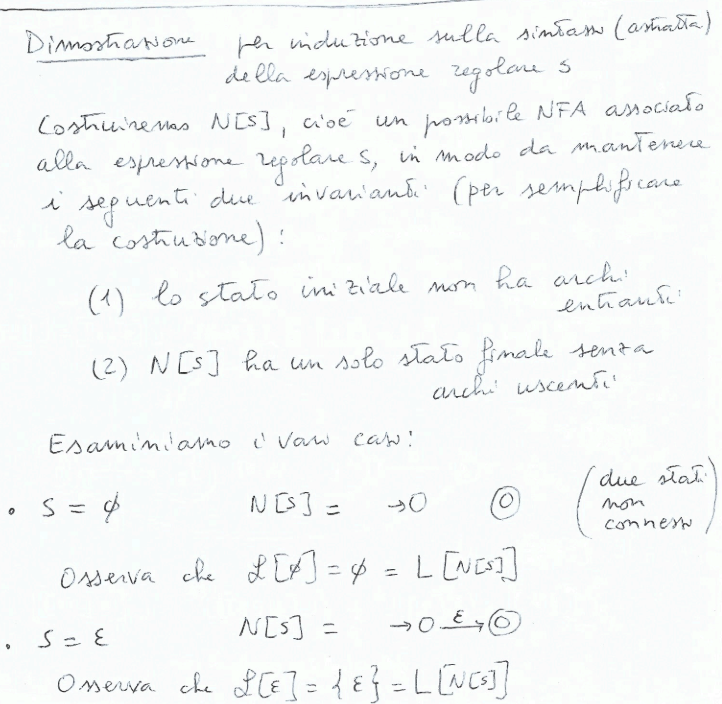 Dimostrazione per induzione sulla sintassi (astratta)
della espressione regolare s
Costruiremo N[s], cioè un possibile NFA associato
alla espressione regolare s, in modo da mantenere
i seguenti due invarianti (per semplificare
la costruzione):
(1) lo stato iniziale non ha archi
entranti
(2) N[s] ha un solo stato finale senza
archi uscenti
Esaminiamo i vari casi:
• s = ∅ N[s] = → O ◎ (due stati
non
connessi)
Osserva che ℒ[∅] = ∅ = L[N[s]]
• s = ε N[s] = → O —ε→ ◎
Osserva che ℒ[ε] = {ε} = L[N[s]]